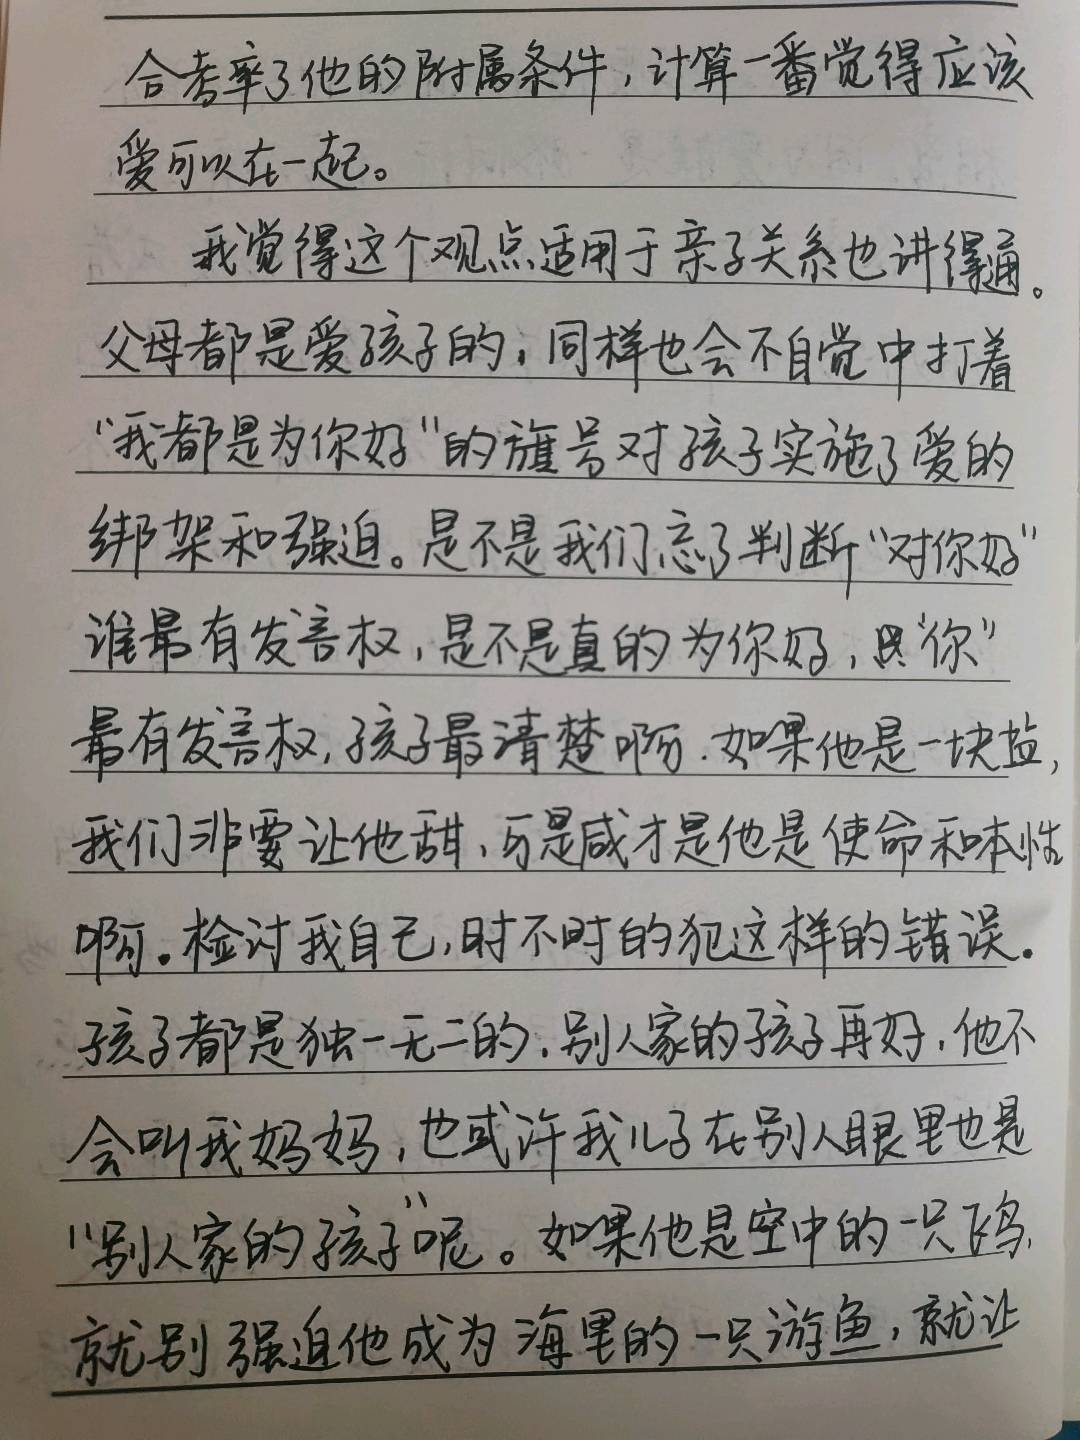 合考率了他的附属条件，计算一番觉得应该
爱可以在一起。
我觉得这个观点适用于亲子关系也讲得通。
父母都是爱孩子的，同样也会不自觉中打着
“我都是为你好”的旗号对孩子实施了爱的
绑架和强迫。是不是我们忘了判断“对你好”
谁最有发言权，是不是真的为你好，只“你”
最有发言权，孩子最清楚啊.如果他是一块盐，
我们非要让他甜，可是咸才是他是使命和本性
啊。检讨我自己，时不时的犯这样的错误.
孩子都是独一无二的，别人家的孩子再好，他不
会叫我妈妈，也或许我儿子在别人眼里也是
“别人家的孩子”呢。如果他是空中的一只飞鸟，
就别强迫他成为海里的一只游鱼，就让